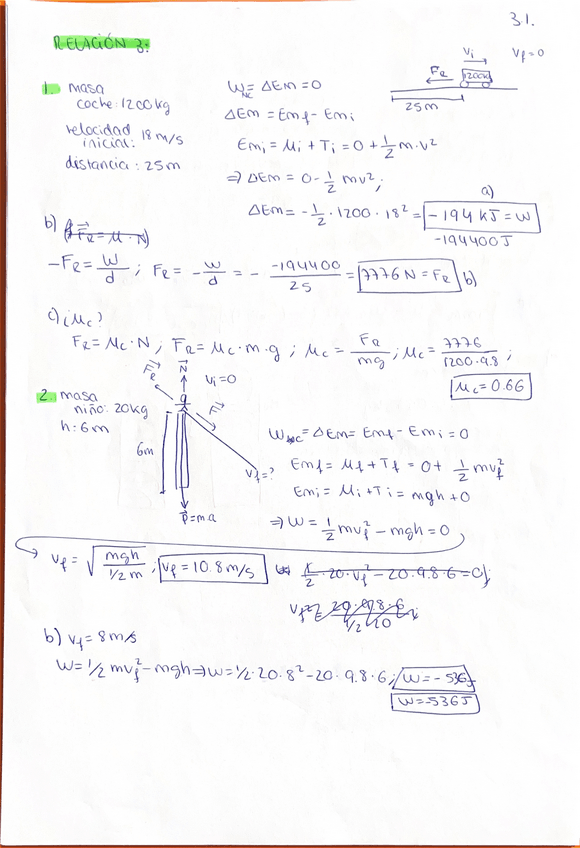 31.
RELACIÓN 3:
1. masa
coche: 1200kg
velocidad
inicial: 18 m/s
distancia: 25m
W_NC = ΔEm = 0
ΔEm = Emf - Emi
Emi = Ui + Ti = 0 + 1/2 m·v²
⇒ ΔEm = 0 - 1/2 mv²;
ΔEm = -1/2 · 1200 · 18² = -194 kJ = W
a)
-194400 J
Vi
Vf = 0
FR
1200kg
25m
b) (FR = μ·N)
-FR = W/d ; FR = -W/d = - -194400/25 = 7776 N = FR b)
c) ¿μc?
FR = μc·N ; FR = μc·m·g ; μc = FR/mg ; μc = 7776/1200·9.8 ;
μc = 0.66
2. masa
niño: 20kg
h: 6m
FR
N
Vi = 0
F
6m
Vf = ?
P = m.a
W_NC = ΔEm = Emf - Emi = 0
Emf = Uf + Tf = 0 + 1/2 mvf²
Emi = Ui + Ti = mgh + 0
⇒ W = 1/2 mvf² - mgh = 0
→ Vf = √(mgh / 1/2 m) ; Vf = 10.8 m/s
1/2 · 20 · Vf² - 20 · 9.8 · 6 = 0;
Vf² = 20 · 9.8 · 6 / 1/2 20
b) Vf = 8 m/s
W = 1/2 mvf² - mgh ⇒ W = 1/2 · 20 · 8² - 20 · 9.8 · 6 ; W = -536J
W = -536J